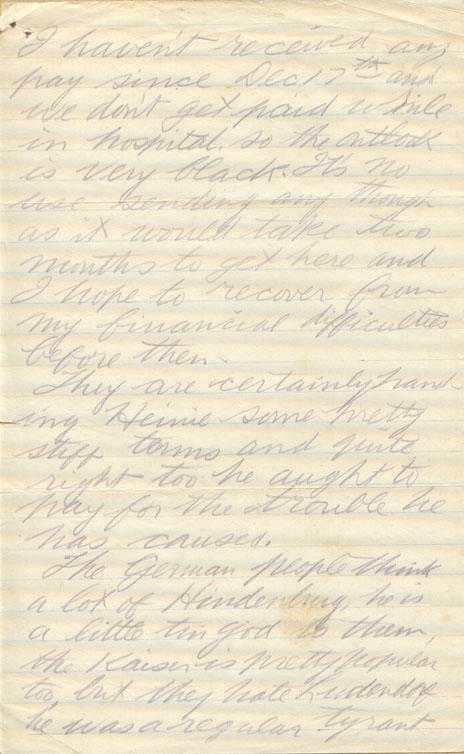 I haven't received any
pay since Dec 17th and
we don't get paid while
in hospital. so the outlook
is very black. It's no
use sending any though
as it would take two
months to get here and
I hope to recover from
my financial difficulties
before then.
They are certainly hand
ing Heinie some pretty
stiff terms and quite
right too he aught to
pay for the trouble he
has causes.
The German people think
a lot of Hindenburg, he is
a little tin god to them,
the Kaiser is pretty popular
too but they hate Ludendorf
he was a regular tyrant